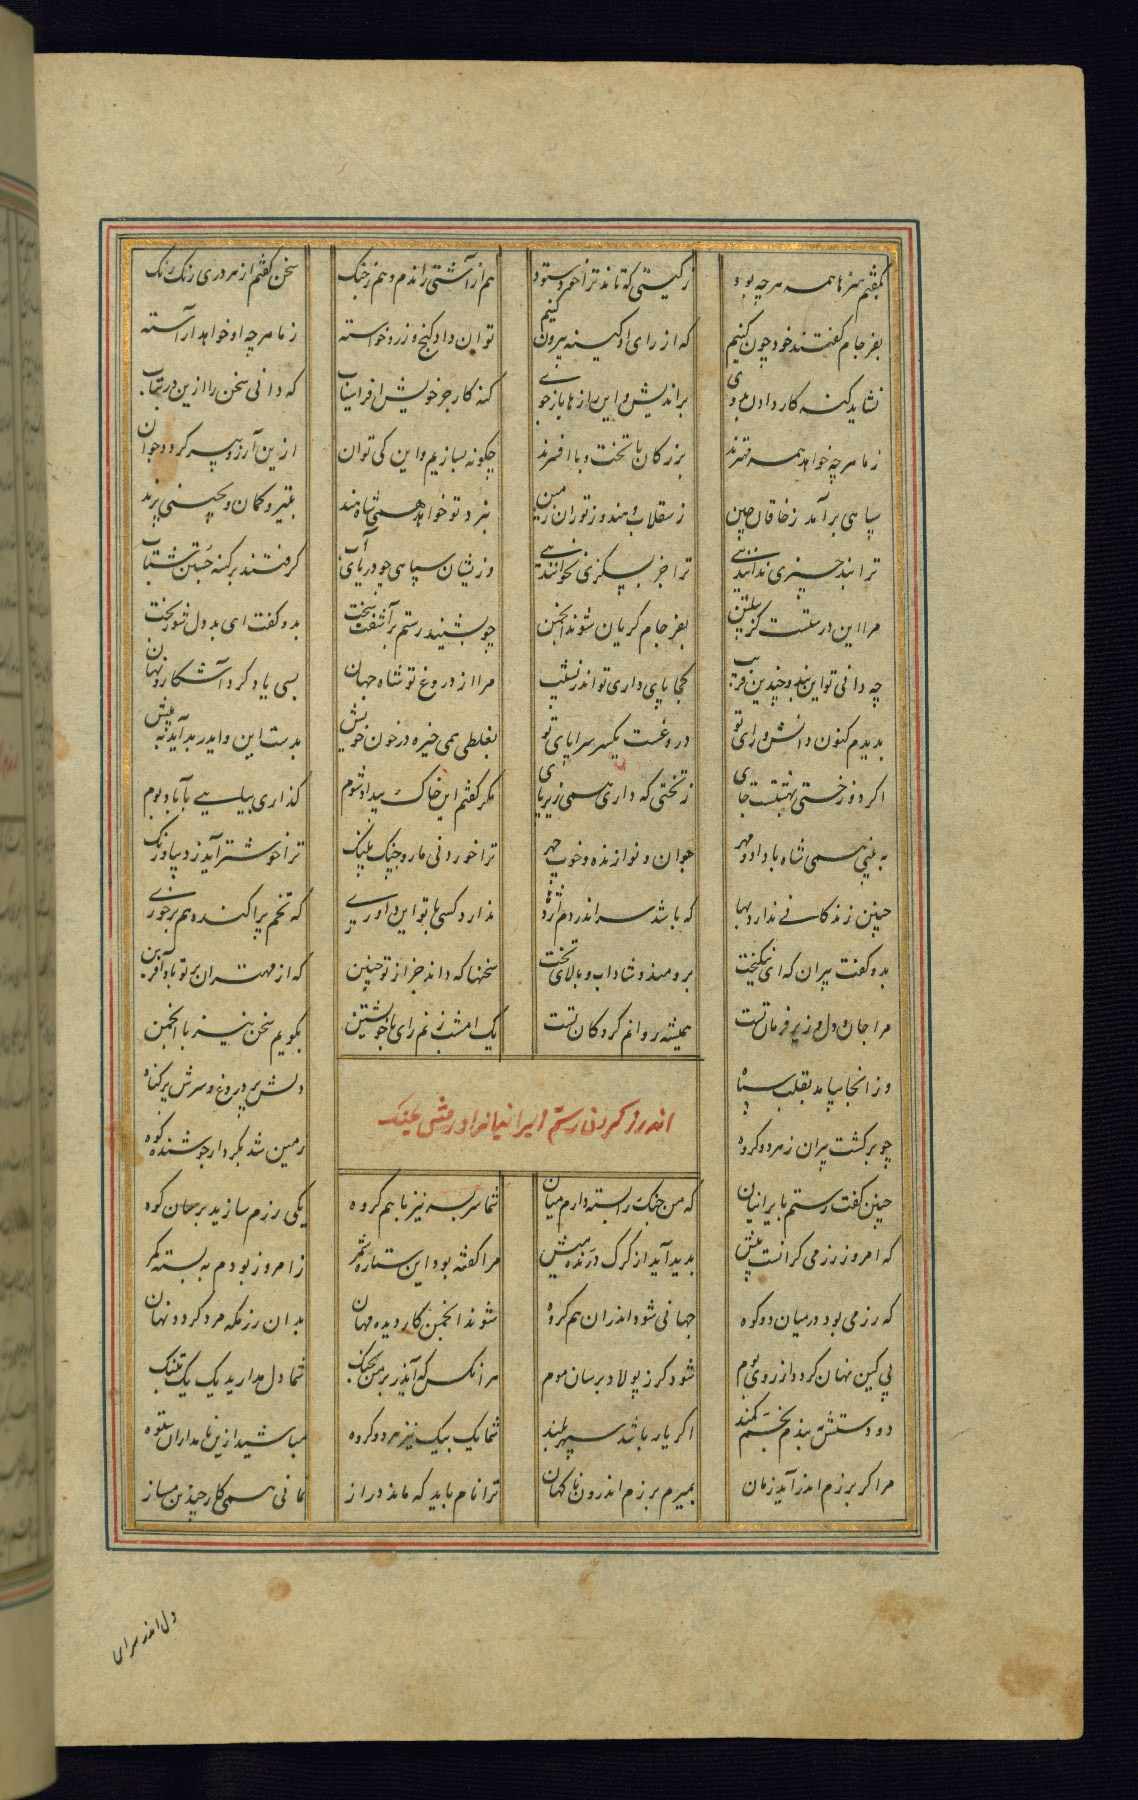 بگفتم هنرها همه هر چه بود ز گیتی که تا ند ترا خود ستود هم از آشتی راندم و هم ز جنگ سخن گفتم از هر دری رنگ رنگ
بفرجام گفتند خود چون کنیم که از رای او کینه بیرون کنیم توان داد گنج و زر و خواسته ز ما هر چه او خواهد آراسته
نشاید گنه کار دادن بدوی براندیش و این رازها باز جوی گنه کار جز خویش افراسیاب که دانی سخن را ازین در متاب
ز ما هر چه خواهد همه مهترند بزرگان با تخت و با افسرند چگونه بسازیم و این کی توان ازین آرزو پیر گردد جوان
سپاهی برآمد ز خاقان چین ز سقلاب و هند و ز توران زمین نبرد تو خواهد همی شاه هند بتیر و کمان و بچینی پرند
ترا بند چیزی ندانند همی ترا جز بسگزی نخوانند همی وزیشان سپاهی چو دریای آب گرفتند بر کینه جستن شتاب
مرا این درستست کز پیلتن بفرجام گریان شوند انجمن چو بشنید رستم برآشفت سخت بدو گفت ای بد دل شوربخت
چه دانی تو این بند و چندین فریب کجا پای داری تو اندر نشیب مرا از دروغ تو شاه جهان بسی یاد کرد آشکار و نهان
بدیدم کنون دانش و رای تو دروغست یکسر سراپای تو بغلطی همی خیره در خون خویش بدست این و ایدر بد آید به پیش
اگر دوزخستی بهشتست جای ز تختی که داری همی زیر پای مگر گفتم این خاک بیداد شوم گذاری بیایی بآباد بوم
به بینی همی شاه با داد و مهر جوان و نوازنده و خوب چهر ترا خوردنی مار و چنگ پلنگ ترا خوشتر آید ز دیبا و رنگ
چنین زندگانی ندارد بها که باشد سر اندر دم اژدها ندارد کسی با تو این داوری که تخم پراکنده هم بر خوری
بدو گفت پیران که ای نیکبخت برومند و شاداب و بالای تخت سخنها که داند جز از تو چنین که از مهتران بر تو باد آفرین
مرا جان و دل زیر فرمان تست همیشه روانم گروگان تست یک امشب زنم رای با خویشتن بگویم سخن نیز با انجمن
وز انجا بیامد بقلب سپاه دلش پر دروغ و سرش پر گناه
چو برگشت پیران ز هر دو گروه زمین شد بکردار جوشنده کوه
اندرز کردن رستم ایرانیانرا و رفتن بجنگ
چنین گفت رستم بایرانیان که من جنگ را بسته دارم میان شما سر بسر نیز با هم گروه یکی رزم سازید بر سان کوه
که امروز رزمی گرانست پیش پدید آید از گرگ درنده میش مرا گفته بود این ستاره شمر ز امروز بودم به بسته کمر
که رزمی بود در میان دو کوه جهانی شود اندران هم گروه شوند انجمن کار دیده مهان بدان رزمگه مرد گردد نهان
پی کین نهان گردد از روی بوم شود گرز پولاد بر سان موم هر انکس که آید بر من بجنگ شما دل مدارید یک یک تنگ
دو دستش ببندم بخم کمند اگر یار باشد سپهر بلند شما یک بیک نیز هر دو گروه مباشید ازین نامداران ستوه
مرا گر برزم اندر آید زمان بمیرم برزم اندرون ناگهان ترا نام باید که ماند دراز نمانی همی کار چندین مساز
دل اندر سرای